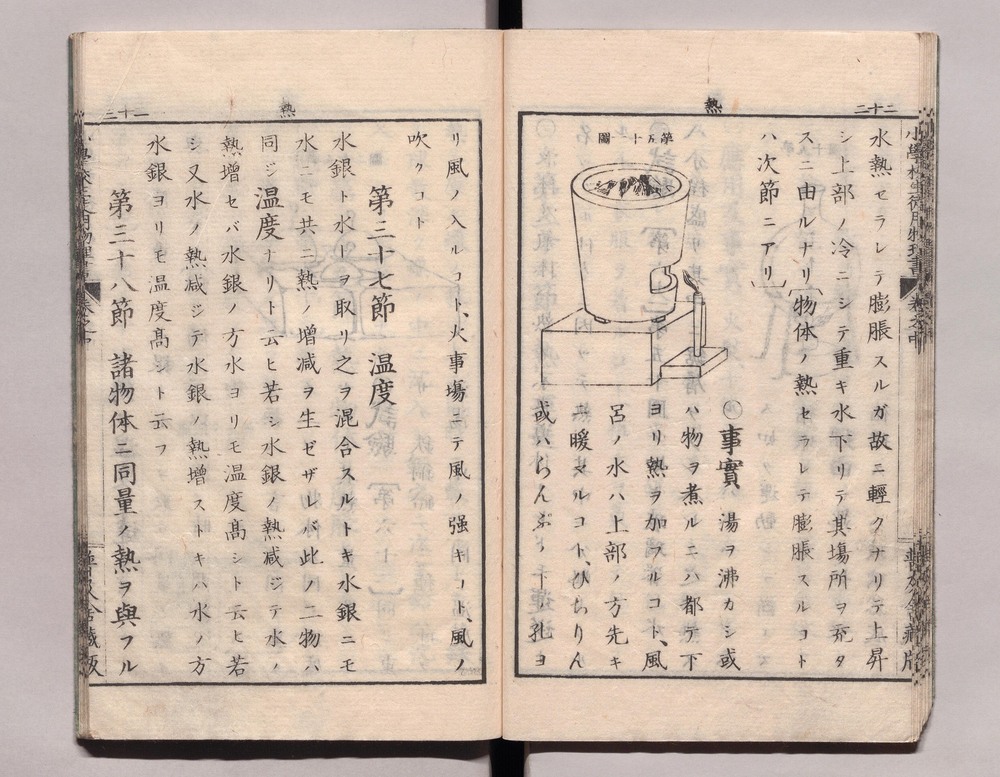 熱
二十二
水熱セラレテ膨脹スルガ故ニ輕クナリテ上昇
シ上部ノ冷ニシテ重キ水下リテ其塲所ヲ充タ
スニ由ルナリ〔物体ノ熱セラレテ膨脹スルコト
ハ次節ニアリ〕
第五十一圖
〇事實 湯ヲ沸カシ或
ハ物ヲ煮ルニハ都テ下
ヨリ熱ヲ加フルコト、風
呂ノ水ハ上部ノ方先キ
ニ暖マルコト、ひちりん
或ハらんぷハ下ノ孔ヨ
熱
二十三
リ風ノ入ルコト、火事塲ニテ風ノ强キコト、風ノ
吹クコト
第三十七節 温度
水銀ト水トヲ取リ之ヲ混合スルトキ水銀ニモ
水ニモ共ニ熱ノ增减ヲ生ゼザレバ此ノ二物ハ
同ジ温度ナリト云ヒ若シ水銀ノ熱减ジテ水ノ
熱增セバ水銀ノ方水ヨリモ温度髙シト云ヒ若
シ又水ノ熱减ジテ水銀ノ熱增ストキハ水ノ方
水銀ヨリモ温度髙シト云フ
第三十八節 諸物体ニ同量ノ熱ヲ與フル